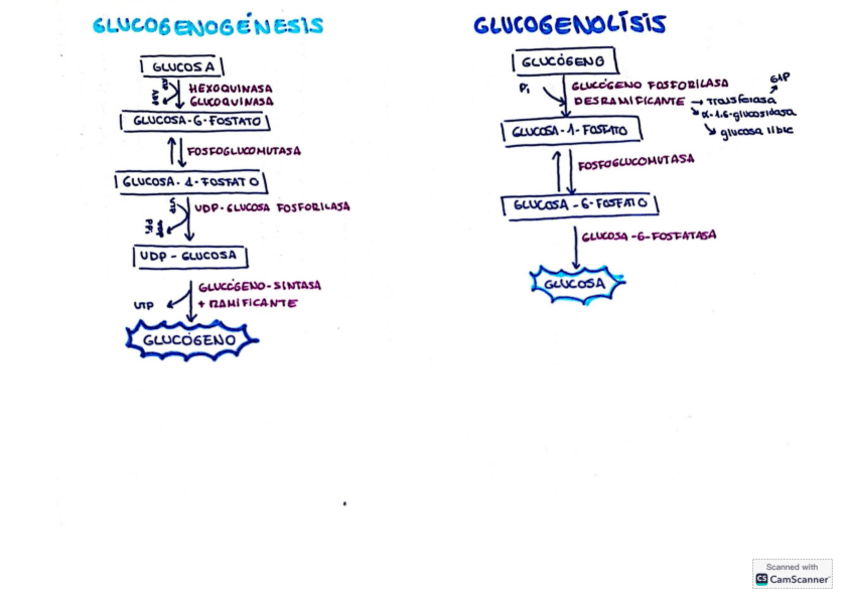 GLUCOGENOGÉNESIS
GLUCOSA
HEXOQUINASA
GLUCOQUINASA
GLUCOSA-6-FOSTATO
FOSFOGLUCOMUTASA
GLUCOSA-1-FOSFATO
UDP-GLUCOSA FOSFORILASA
PPi
UDP-GLUCOSA
GLUCÓGENO-SINTASA
UTP + RAMIFICANTE
GLUCÓGENO
GLUCOGENOLÍSIS
GLUCÓGENO
Pi GLUCÓGENO FOSFORILASA
DESRAMIFICANTE → Trasferasa
α-1.6-glucosidasa
glucosa libre
GLUCOSA-1-FOSFATO
FOSFOGLUCOMUTASA
GLUCOSA-6-FOSFATO
GLUCOSA-6-FOSFATASA
GLUCOSA
Scanned with
CS CamScanner